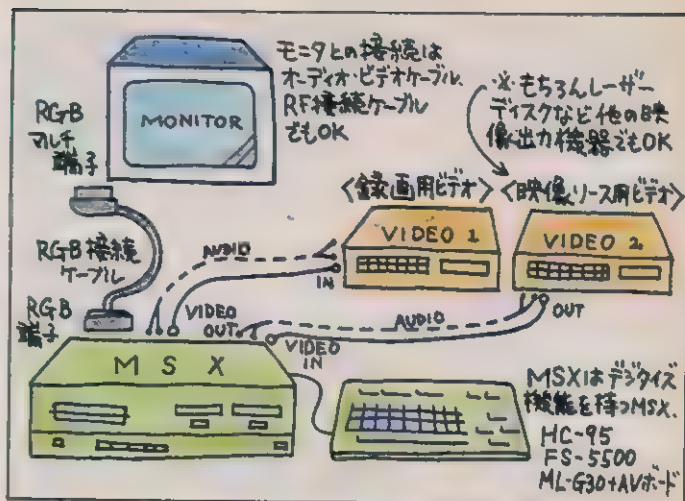 モニタとの接続は
オーディオ・ビデオケーブル、
RF接続ケーブル
でもOK
※もちろんレーザー
ディスクなど他の映
像出力機器でもOK
MONITOR
RGB
マルチ
端子
RGB接続
ケーブル
RGB
端子
<録画用ビデオ>
<映像ソース用ビデオ>
VIDEO 1
VIDEO 2
AUDIO
IN
VIDEO
OUT
AUDIO
OUT
VIDEO
IN
MSX
MSXはデジタイズ
機能を持つMSX.
HC-95
FS-5500
ML-G30+AVボード